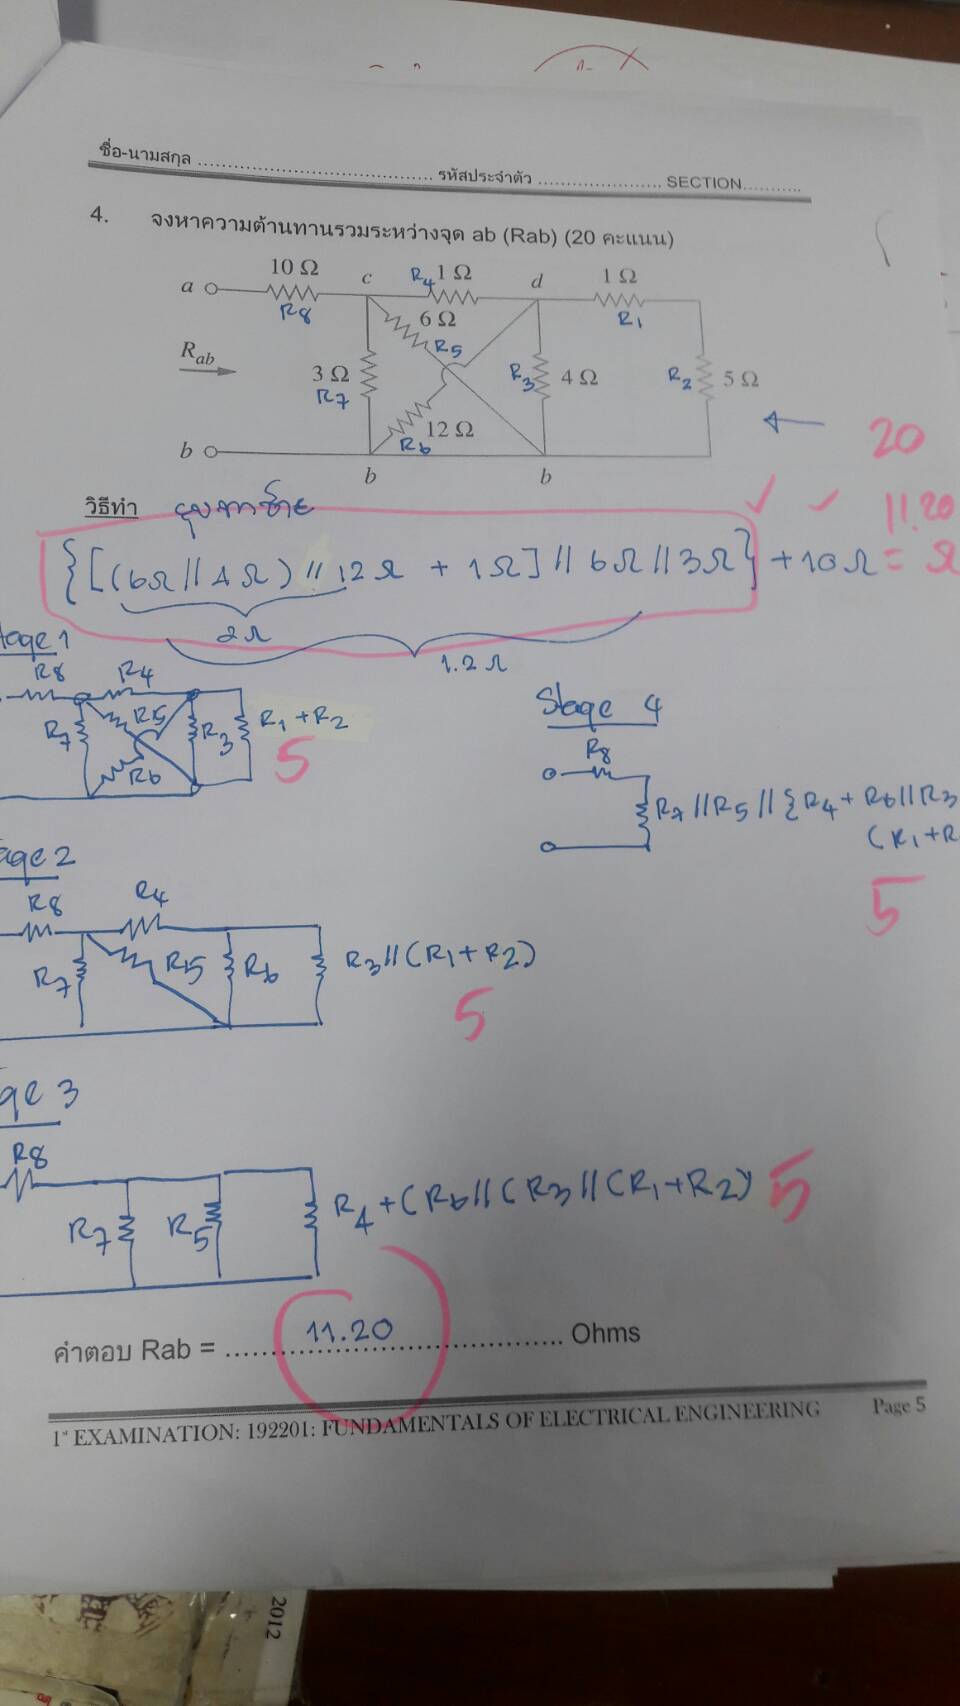 ชื่อ-นามสกุล ........................................ รหัสประจำตัว ...................... SECTION...........
4. จงหาความต้านทานรวมระหว่างจุด ab (Rab) (20 คะแนน)
10 Ω c R4 1 Ω d 1 Ω
a R8 6 Ω R1
R5
Rab 3 Ω R3 4 Ω R2 5 Ω
R7
12 Ω
R6
b
b b
20
วิธีทำ
11.20
{[(6Ω // 4Ω) // 12Ω + 1Ω] // 6Ω // 3Ω} + 10Ω = Ω
2Ω
1.2 Ω
tage 1
R8 R4
R7 R5 R3 R1 + R2
R6
5
Stage 4
R8
R7 // R5 // {R4 + R6 // R3
(R1 + R
5
age 2
R8 R4
R7 R5 R6 R3 // (R1 + R2)
5
ge 3
R8
R7 R5 R4 + (R6 // (R3 // (R1 + R2)
5
คำตอบ Rab = ........ 11.20 ........ Ohms
1st EXAMINATION: 192201: FUNDAMENTALS OF ELECTRICAL ENGINEERING Page 5
2012